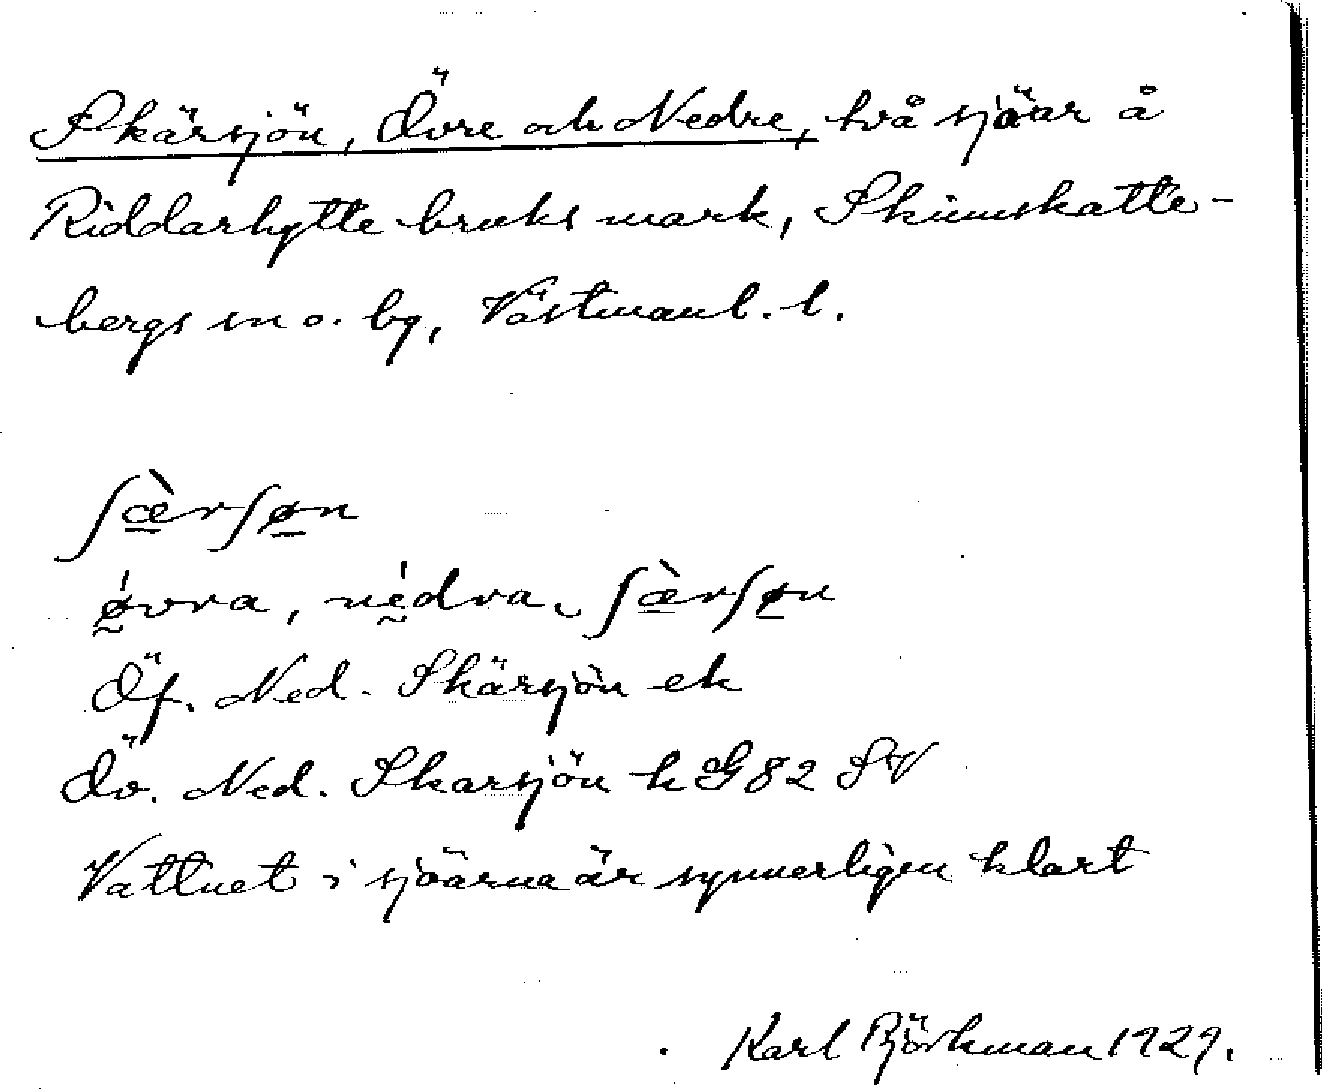 Skärsjön, Övre och Nedre, två sjöar å
Riddarhytte bruks mark, Skinnskatte-
bergs sn o. bg, Västmanl. l.
ʃæ̀rʃøn
ǿvra, nédra, ʃæ̀rʃøn
Öf. Ned. Skärsjön ek
Öv. Ned. Skarsjön k G 82 SV
Vattnet i sjöarna är synnerligen klart
Karl Björkman 1929.